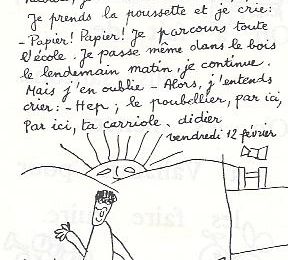 Je prends la poussette et je crie:
- Papier! Papier! Je parcours toute
l'école. Je passe même dans le bois
le lendemain matin, je continue.
Mais j'en oublie - Alors, j'entends
crier: - Hep, le poubellier, par ici,
Par ici, ta carriole. didier
vendredi 12 février